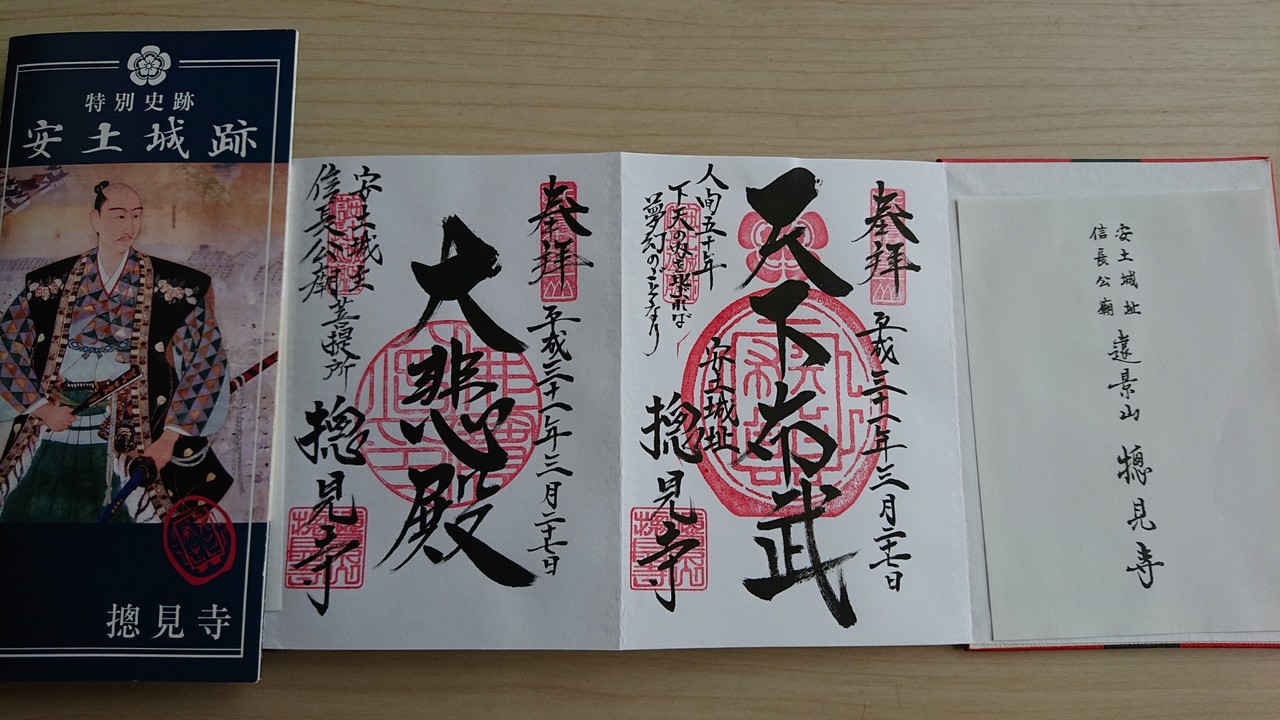 特別史跡
安土城跡
摠見寺
奉拝
平成三十一年三月二十七日
大悲殿
安土城主
信長公廟
菩提所
摠見寺
奉拝
平成三十一年三月二十七日
天下布武
安土城址
人间五十年
下天の内を
夢幻のことくなり
摠見寺
安土城址
信長公廟
遠景山
摠見寺